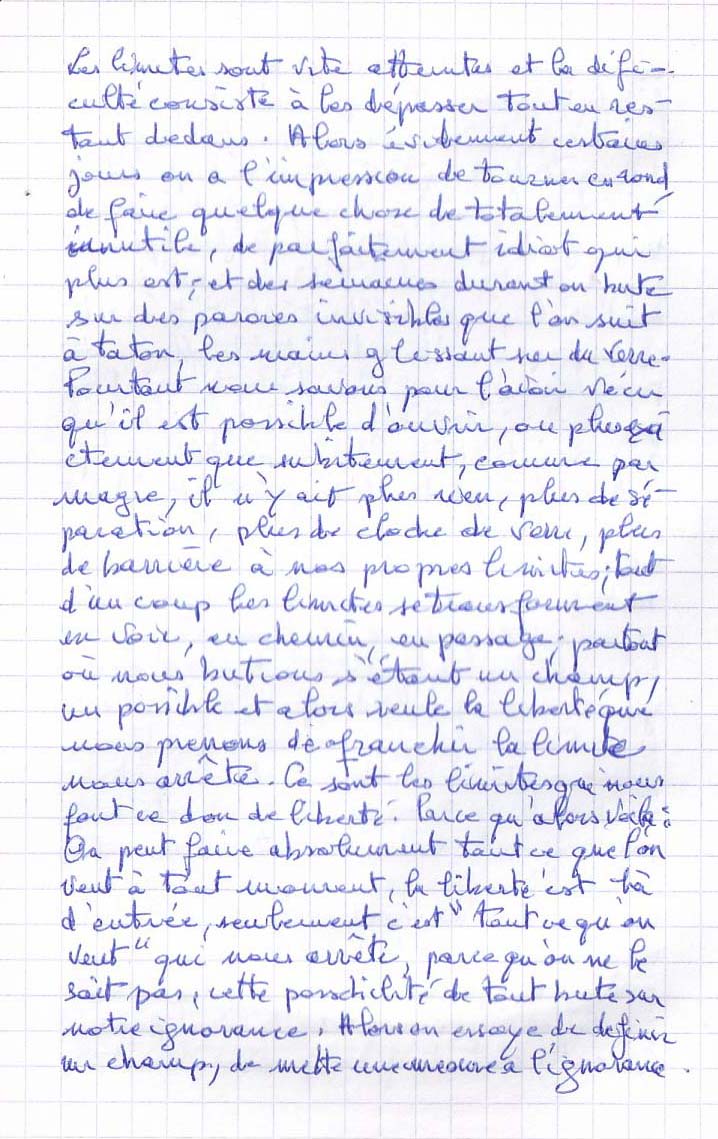 Les limites sont vite atteintes et la diffi-
culté consiste à les dépasser tout en res-
tant dedans. Alors évidemment certains
jours on a l'impression de tourner en rond,
de faire quelque chose de totalement
inutile, de parfaitement idiot qui
plus est; et des semaines durant on bute
sur des parois invisibles que l'on suit
à taton, les mains glissant sur du verre.
Pourtant nous savons pour l'avoir vécu
qu'il est possible d'ouvrir, ou plus exa
ctement que subitement, comme par
magie, il n'y ait plus rien, plus de sé-
paration, plus de cloche de verre, plus
de barrière à nos propres limites; tout
d'un coup les limites se transforment
en voie, en chemin, en passage; partout
où nous butions s'étend un champ,
un possible et alors seule la liberté que
nous prenons de franchir la limite
nous arrête. Ce sont les limites qui nous
font ce don de liberté. Parce qu'alors voilà:
On peut faire absolument tout ce que l'on
veut à tout moment, la liberté est là
d'entrée, seulement c'est "tout ce qu'on
veut" qui nous arrête, parce qu'on ne le
sait pas, cette possibilité de tout bute sur
notre ignorance. Alors on essaye de définir
un champ, de mettre une mesure à l'ignorance.